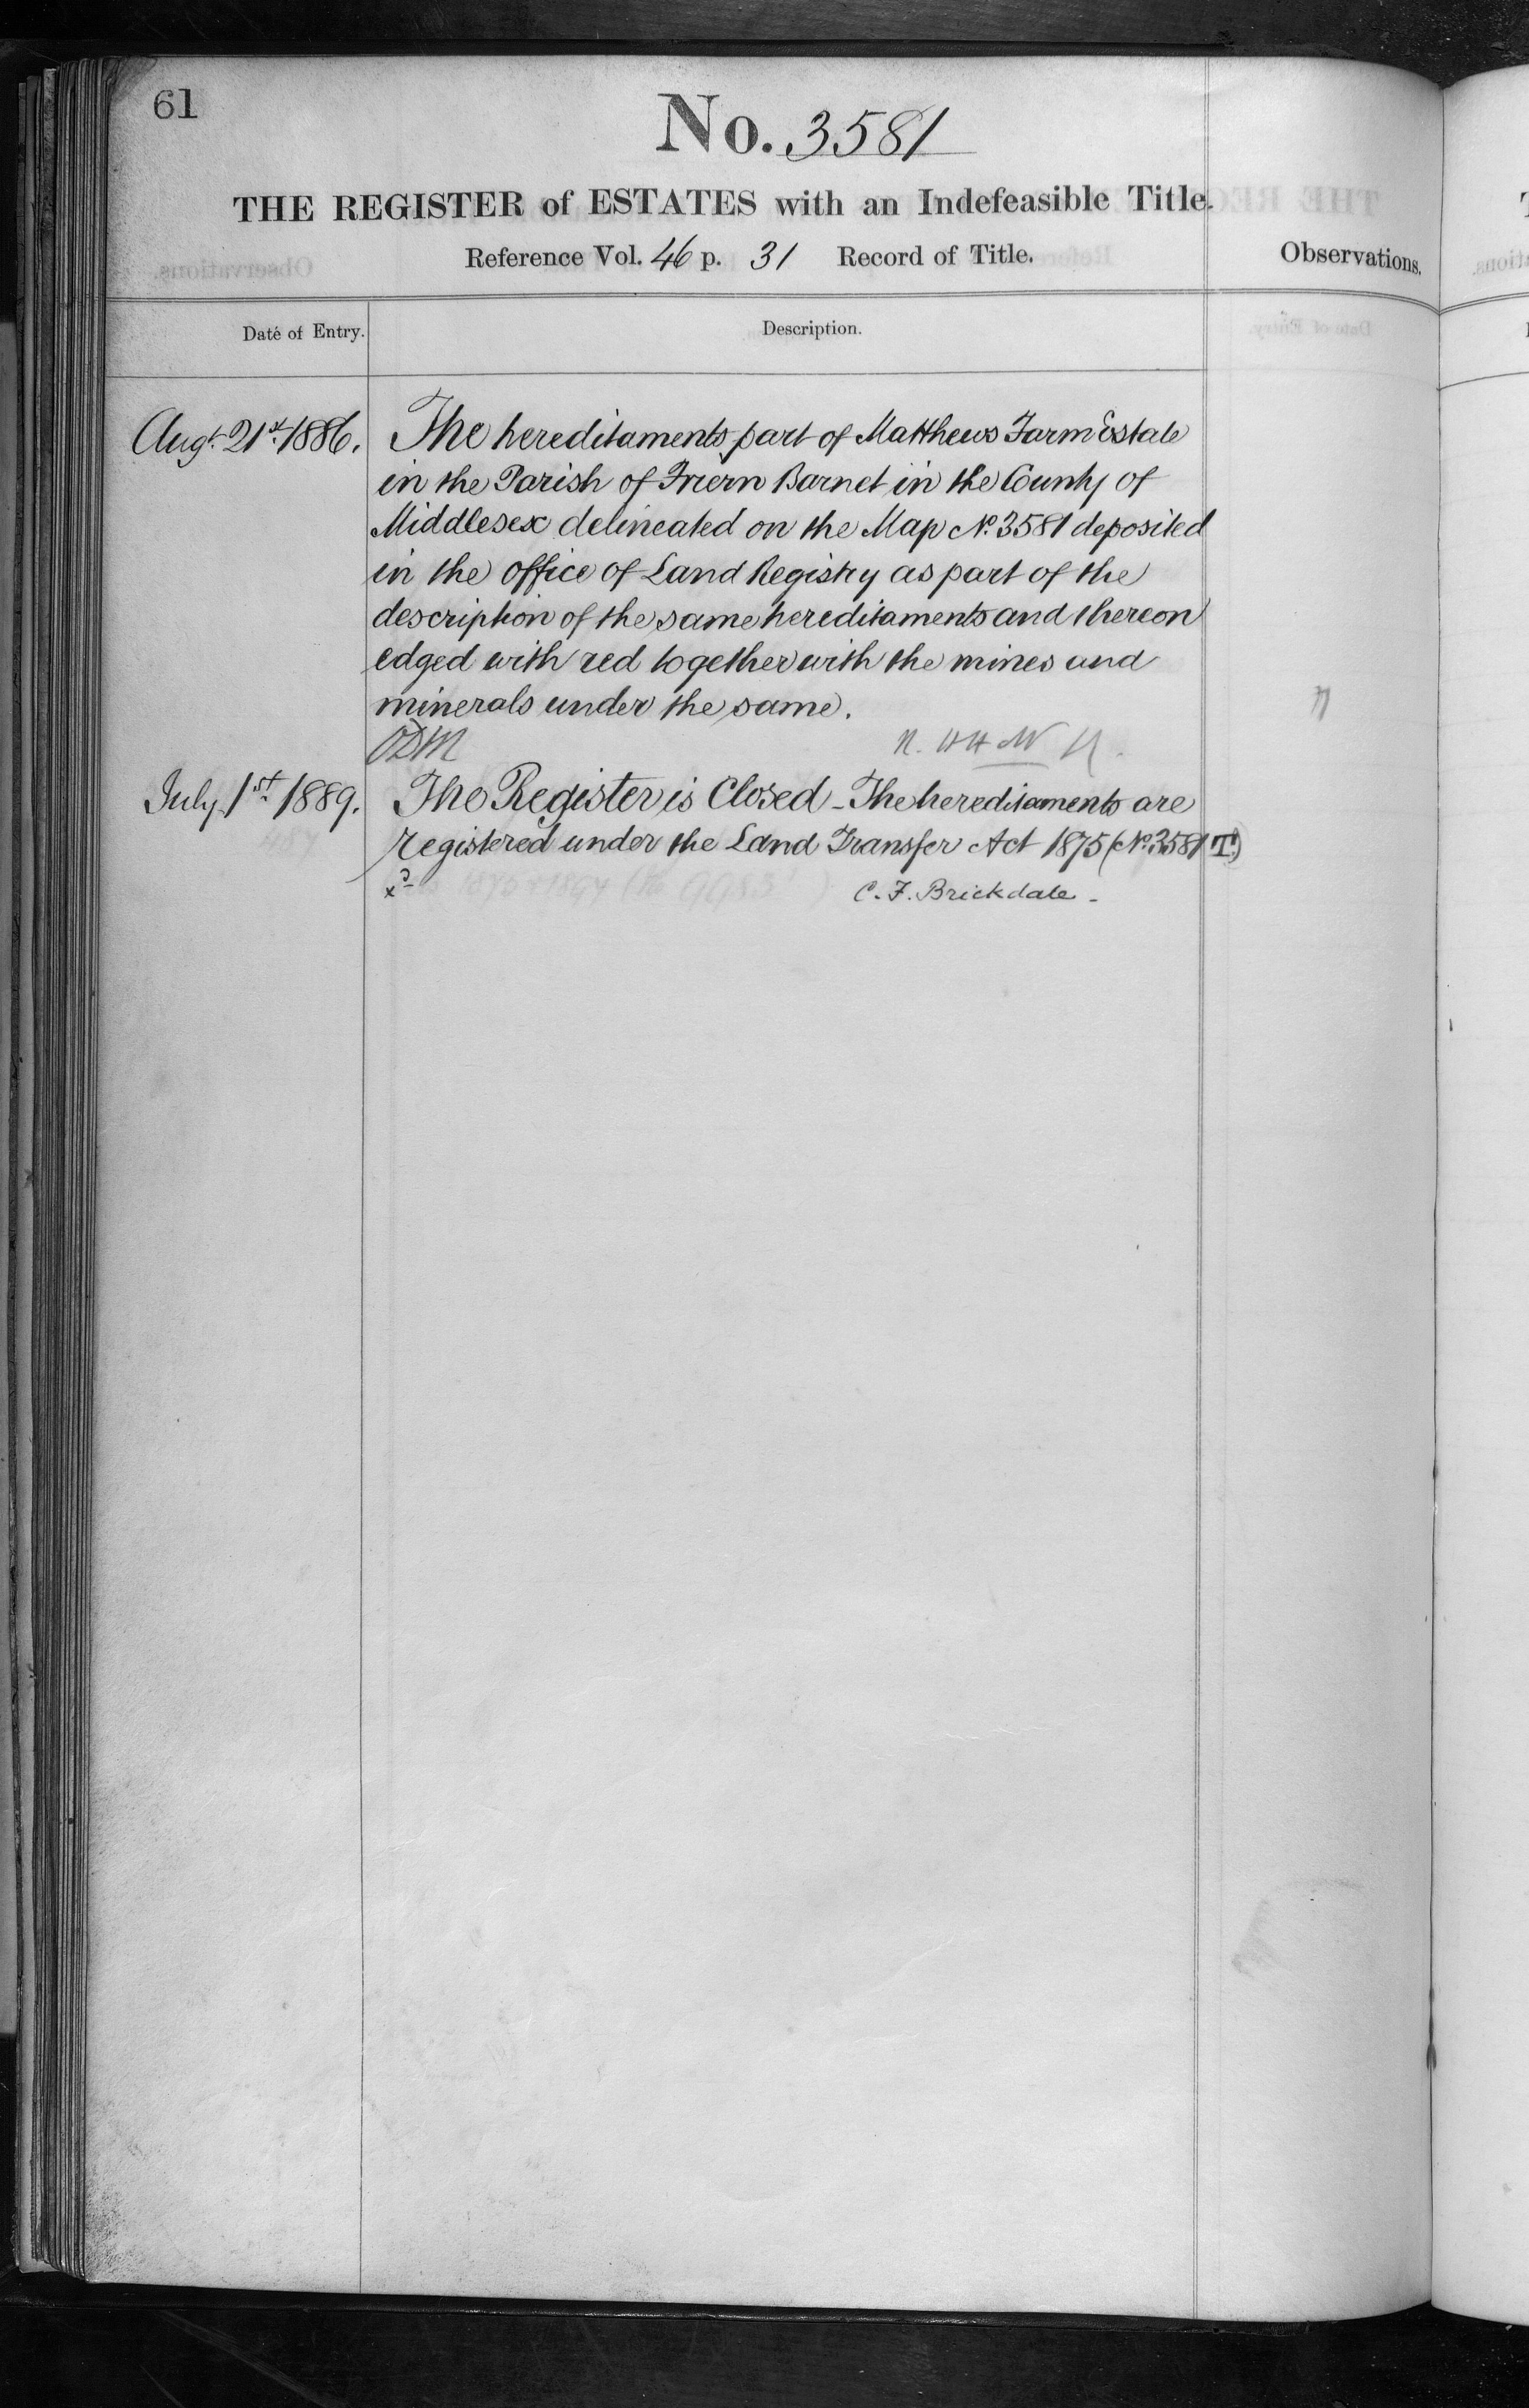 61
No. 3581
THE REGISTER of ESTATES with an Indefeasible Title.
Reference Vol. 46 p. 31 Record of Title.
Observations.
Date of Entry.
Description.
Augt. 21st. 1886. The hereditaments part of Matthews Farm Estate
in the Parish of Friern Barnet in the County of
Middlesex delineated on the Map No. 3581 deposited
in the office of Land Registry as part of the
description of the same hereditaments and thereon
edged with red together with the mines and
minerals under the same.
July 1st. 1889. The Register is Closed - The hereditaments are
registered under the Land Transfer Act 1875 (No. 3581 T.)
C. F. Brickdale -